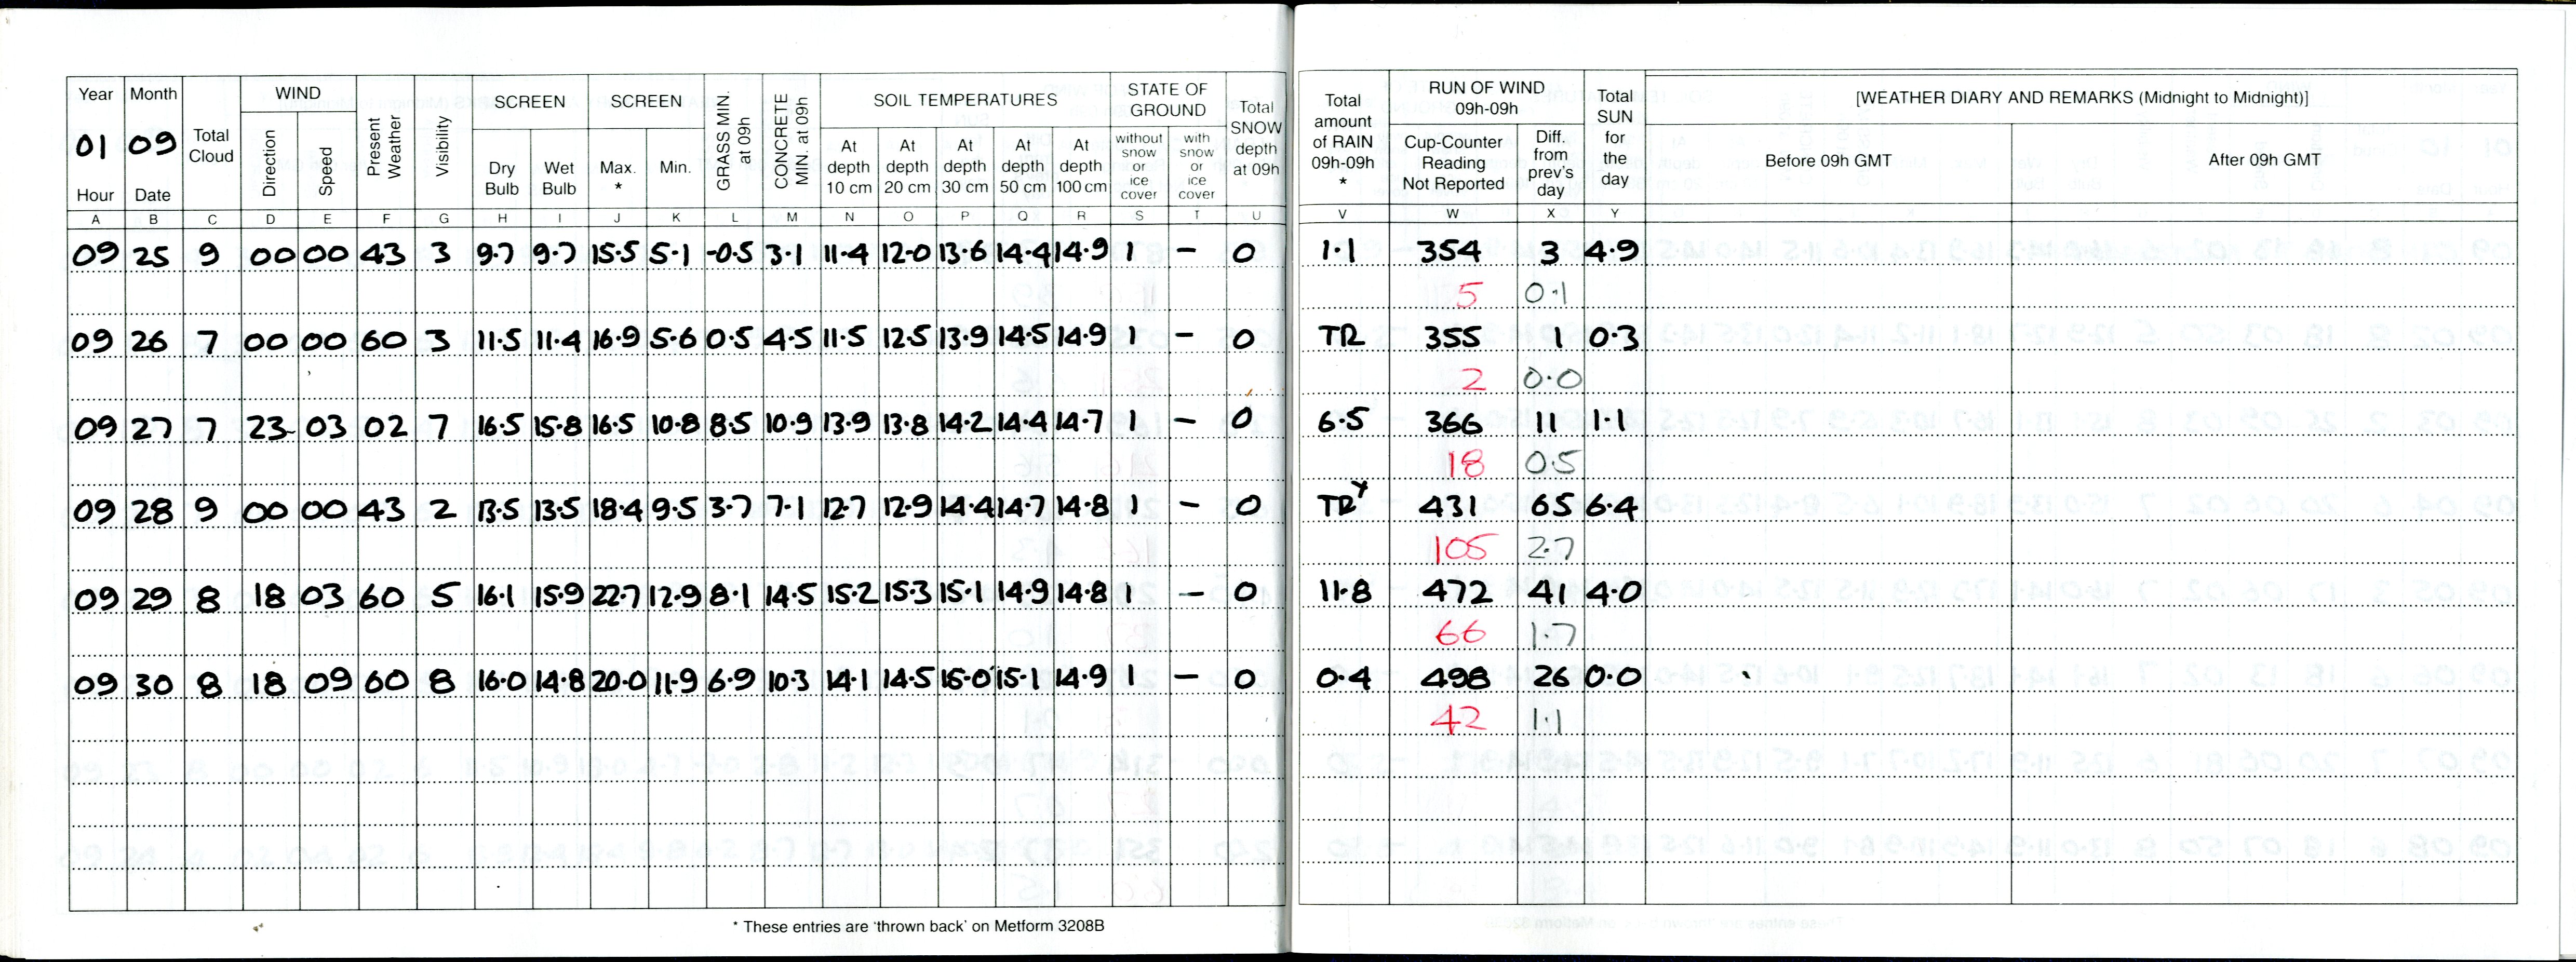 Year Month
01 09
Hour Date
Total Cloud
WIND
Direction Speed
Present Weather
Visibility
SCREEN
Dry Bulb Wet Bulb
SCREEN
Max. * Min.
GRASS MIN. at 09h
CONCRETE MIN. at 09h
SOIL TEMPERATURES
At depth 10 cm At depth 20 cm At depth 30 cm At depth 50 cm At depth 100 cm
STATE OF GROUND
without snow or ice cover with snow or ice cover
Total SNOW depth at 09h
Total amount of RAIN 09h-09h *
RUN OF WIND 09h-09h
Cup-Counter Reading Not Reported Diff. from prev's day
Total SUN for the day
[WEATHER DIARY AND REMARKS (Midnight to Midnight)]
Before 09h GMT After 09h GMT
A B C D E F G H I J K L M N O P Q R S T U V W X Y
09 25 9 00 00 43 3 9.7 9.7 15.5 5.1 -0.5 3.1 11.4 12.0 13.6 14.4 14.9 1 – 0 1.1 354 3 4.9
5 0.1
09 26 7 00 00 60 3 11.5 11.4 16.9 5.6 0.5 4.5 11.5 12.5 13.9 14.5 14.9 1 – 0 TR 355 1 0.3
2 0.0
09 27 7 23 03 02 7 16.5 15.8 16.5 10.8 8.5 10.9 13.9 13.8 14.2 14.4 14.7 1 – 0 6.5 366 11 1.1
18 0.5
09 28 9 00 00 43 2 13.5 13.5 18.4 9.5 3.7 7.1 12.7 12.9 14.4 14.7 14.8 1 – 0 TR 431 65 6.4
105 2.7
09 29 8 18 03 60 5 16.1 15.9 22.7 12.9 8.1 14.5 15.2 15.3 15.1 14.9 14.8 1 – 0 11.8 472 41 4.0
66 1.7
09 30 8 18 09 60 8 16.0 14.8 20.0 11.9 6.9 10.3 14.1 14.5 15.0 15.1 14.9 1 – 0 0.4 498 26 0.0
42 1.1
* These entries are 'thrown back' on Metform 3208B